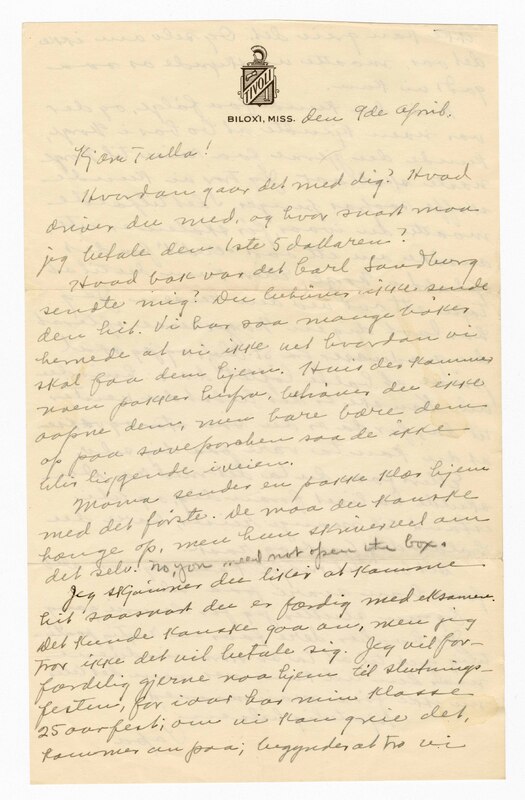 TIVOLI
BILOXI, MISS. den 9de April.
Kjære Tulla!
Hvordan gaar det med dig? Hvad
driver du med, og hvor snart maa
jeg betale den 1ste 5 dollaren?
Hvad bok var det Carl Sandburg
sendte mig? Du behöver ikke sende
den hit. Vi har saa mange böker
hernede at vi ikke vet hvordan vi
skal faa dem hjem. Hvis der kommer
noen pakker herfra, behöver du ikke
aapne dem, men bare bære dem
op paa soveporchen saa de ikke
blir liggende i veien.
Mama sender en pakke klær hjem
med det förste. De maa du kanske
hænge op, men hun skriver vel om
det selv. No, you need not open the box.
Jeg skjönner du liker at komme
hit saasnart du er færdig med eksamen.
Det kunde kanske gaa an, men jeg
tror ikke det vil betale sig. Jeg vil for-
færdelig gjerne naa hjem til slutnings-
festen, for i aar har min klasse
25 aarfest; om vi kan greie det,
kommer an paa; begynder at tro vi